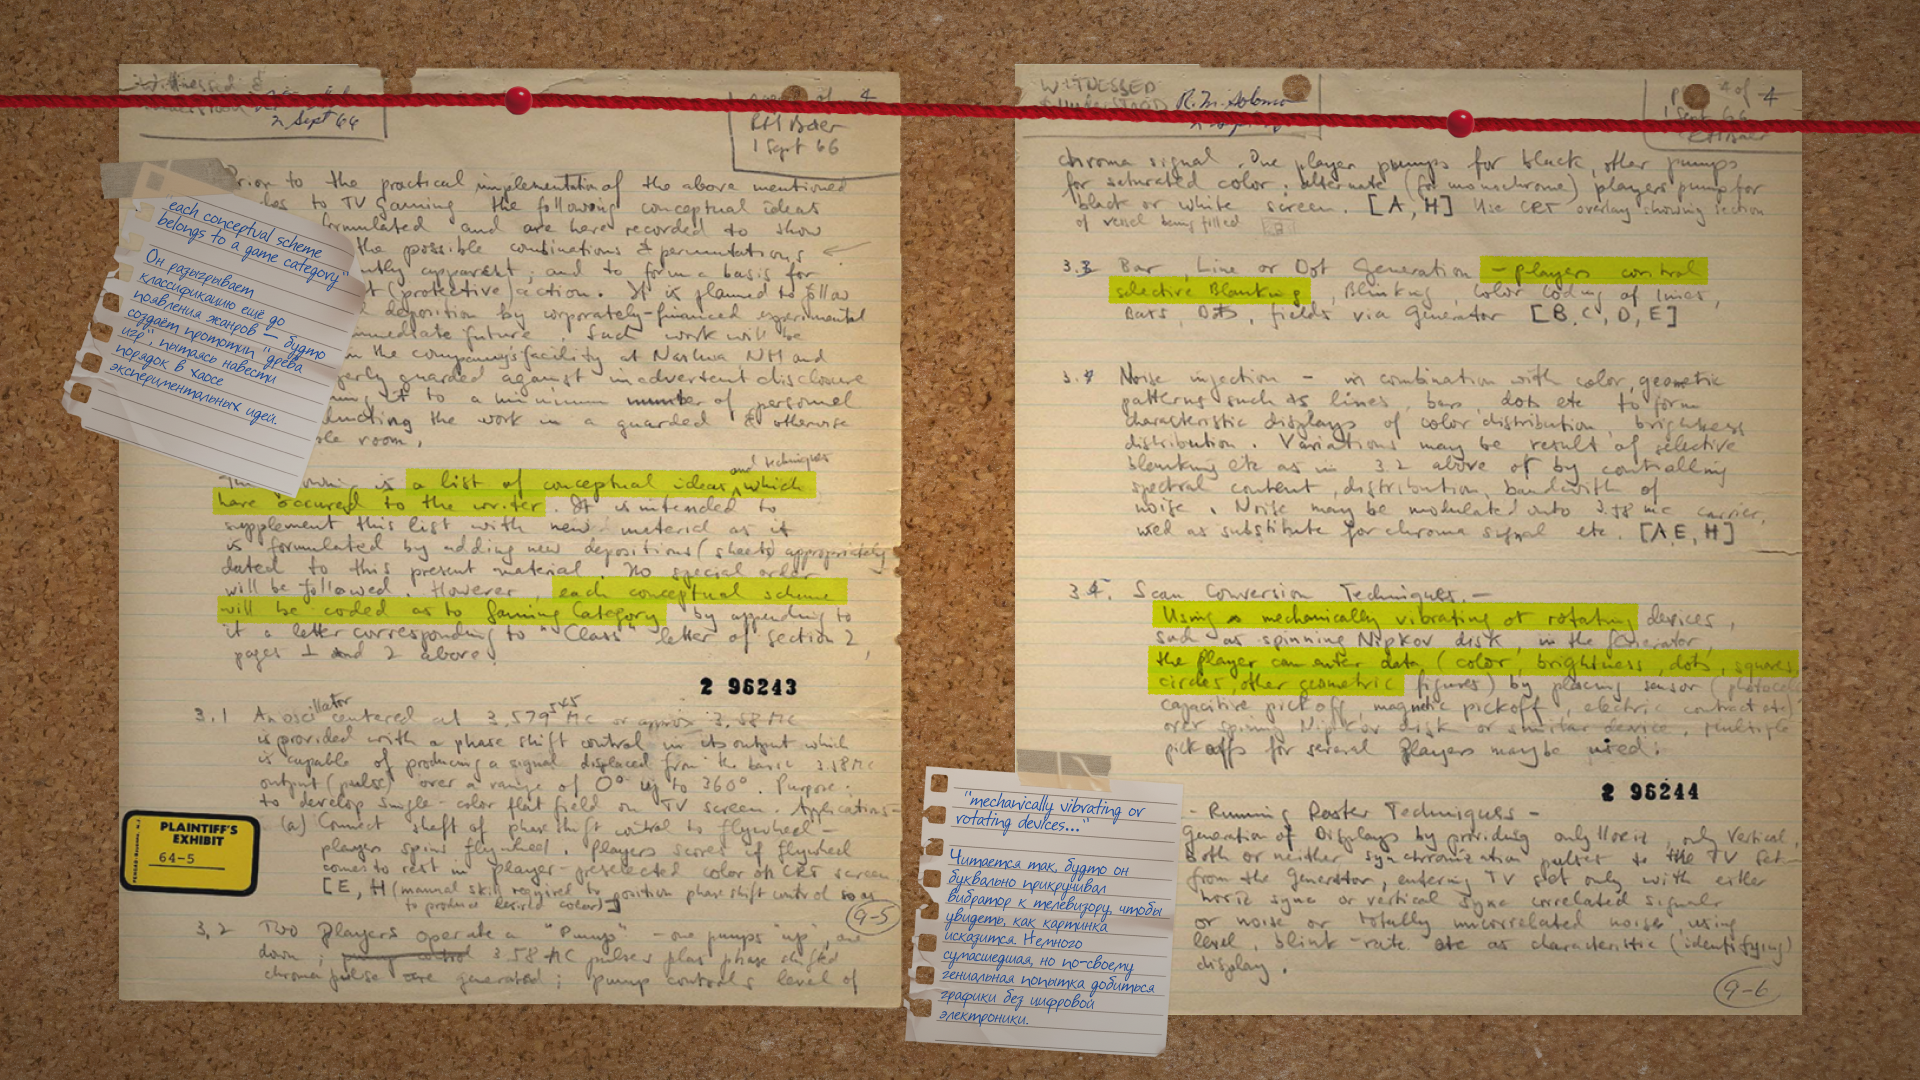 Witnessed &
2 Sept 66
4
RH Baer
1 Sept 66
Prior to the practical implementation of the above mentioned
to TV gaming the following conceptual ideas
formulated and are here recorded to show
the possible combinations & permutations
apparent, and to form a basis for
(protective) action. It is planned to follow
deposition by corporately-financed experimental
immediate future. Such work will be
in the company's facility at Nashua, NH and
guarded against inadvertent disclosure
it to a minimum number of personnel
conducting the work in a guarded & otherwise
room.
and techniques
is a list of conceptual ideas, which
have occured to the writer. It is intended to
supplement this list with new material as it
is formulated by adding new depositions (sheets) appropriately
dated to this present material. No special order
will be followed. However, each conceptual scheme
will be coded as to Gaming Category by appending to
it a letter corresponding to "Class" letter of section 2,
pages 1 and 2 above.
2 96243
3.1 An oscillator centered at 3.579545 MC or approx 3.58 MC
is provided with a phase shift control in its output which
is capable of producing a signal displaced from the basic 3.58 MC
output (pulse) over a range of 0° up to 360°. Purpose:
to develop single-color flat field on TV screen. Applications -
(a) Connect shaft of phase shift control to flywheel -
player spins flywheel. Players scores if flywheel
comes to rest in player-preselected color on CRT screen
[E, H (manual skill required to position phase shift control so as
to produce desired color)]
9-5
3.2 Two players operate a "Pump" - one pumps "up", one
down; pump control 3.58 MC pulses plus phase shifted
chroma pulse are generated; pump controls level of
PLAINTIFF'S
EXHIBIT
64-5
each conceptual scheme
belongs to a game category"
Он разыгрывает
классификацию ещё до
появления жанров — будто
создаёт прототип "древа
игр", пытаясь навести
порядок в хаосе
экспериментальных идей.
WITNESSED
& Understood R. M. Solomon
4 of 4
1 Sept 66
RH Baer
chroma signal. One player pumps for black, other pumps
for saturated color; alternate (for monochrome) players pump for
black or white screen. [A, H] Use CRT overlay showing section
of vessel being filled
3.3 Bar, Line or Dot Generation - players control
selective Blanking, Blinking, Color Coding of lines,
Bars, Dots, fields via Generator [B, C, D, E]
3.4 Noise injection - in combination with color, geometic
patterns such as lines, bars, dots etc to form
characteristic displays of color distribution, brightness
distribution. Variations may be result of selective
blanking etc as in 3.2 above or by controlling
spectral content, distribution, bandwith of
noise. Noise may be modulated onto 3.58 mc carrier,
used as substitute for chroma signal etc. [A, E, H]
Scan Conversion Techniques. -
Using a mechanically vibrating or rotating devices,
such as spinning Nipkov disk, in the Generator,
the player can enter data (color, brightness, dots, squares,
circles, other geometric figures) by placing sensor (photocell
capacitive pickoff, magnetic pickoff, electric contract etc)
over spining Nipkov disk or similar device. Multiple
pickoffs for several players maybe used.
2 96244
- Running Raster Techniques -
Generation of Displays by providing only Horiz, only Vertical,
Both or neither synchronization pulses to the TV set
from the Generator, entering TV set only with either
horiz sync or vertical sync correlated signals
or noise or totally uncorrelated noise, using
level, blink-rate etc as characteristic (identifying)
display.
9-6
"mechanically vibrating or
rotating devices..."
Читается так, будто он
буквально прикручивал
вибратор к телевизору, чтобы
увидеть, как картинка
исказится. Немного
сумасшедшая, но по-своему
гениальная попытка добиться
графики без цифровой
электроники.